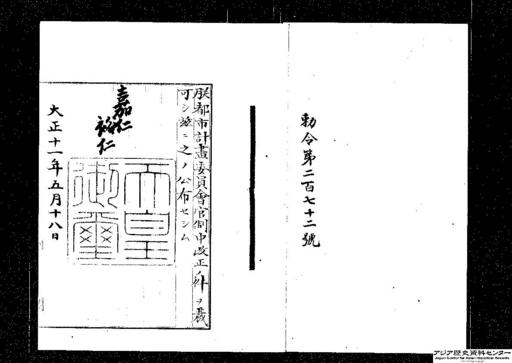 勅令第二百七十二號
朕都市計畫委員會官制中改正ノ件ヲ裁
可シ茲ニ之ヲ公布セシム
嘉仁
裕仁
天皇
御璽
大正十一年五月十八日
アジア歴史資料センター
Japan Center for Asian Historical Records